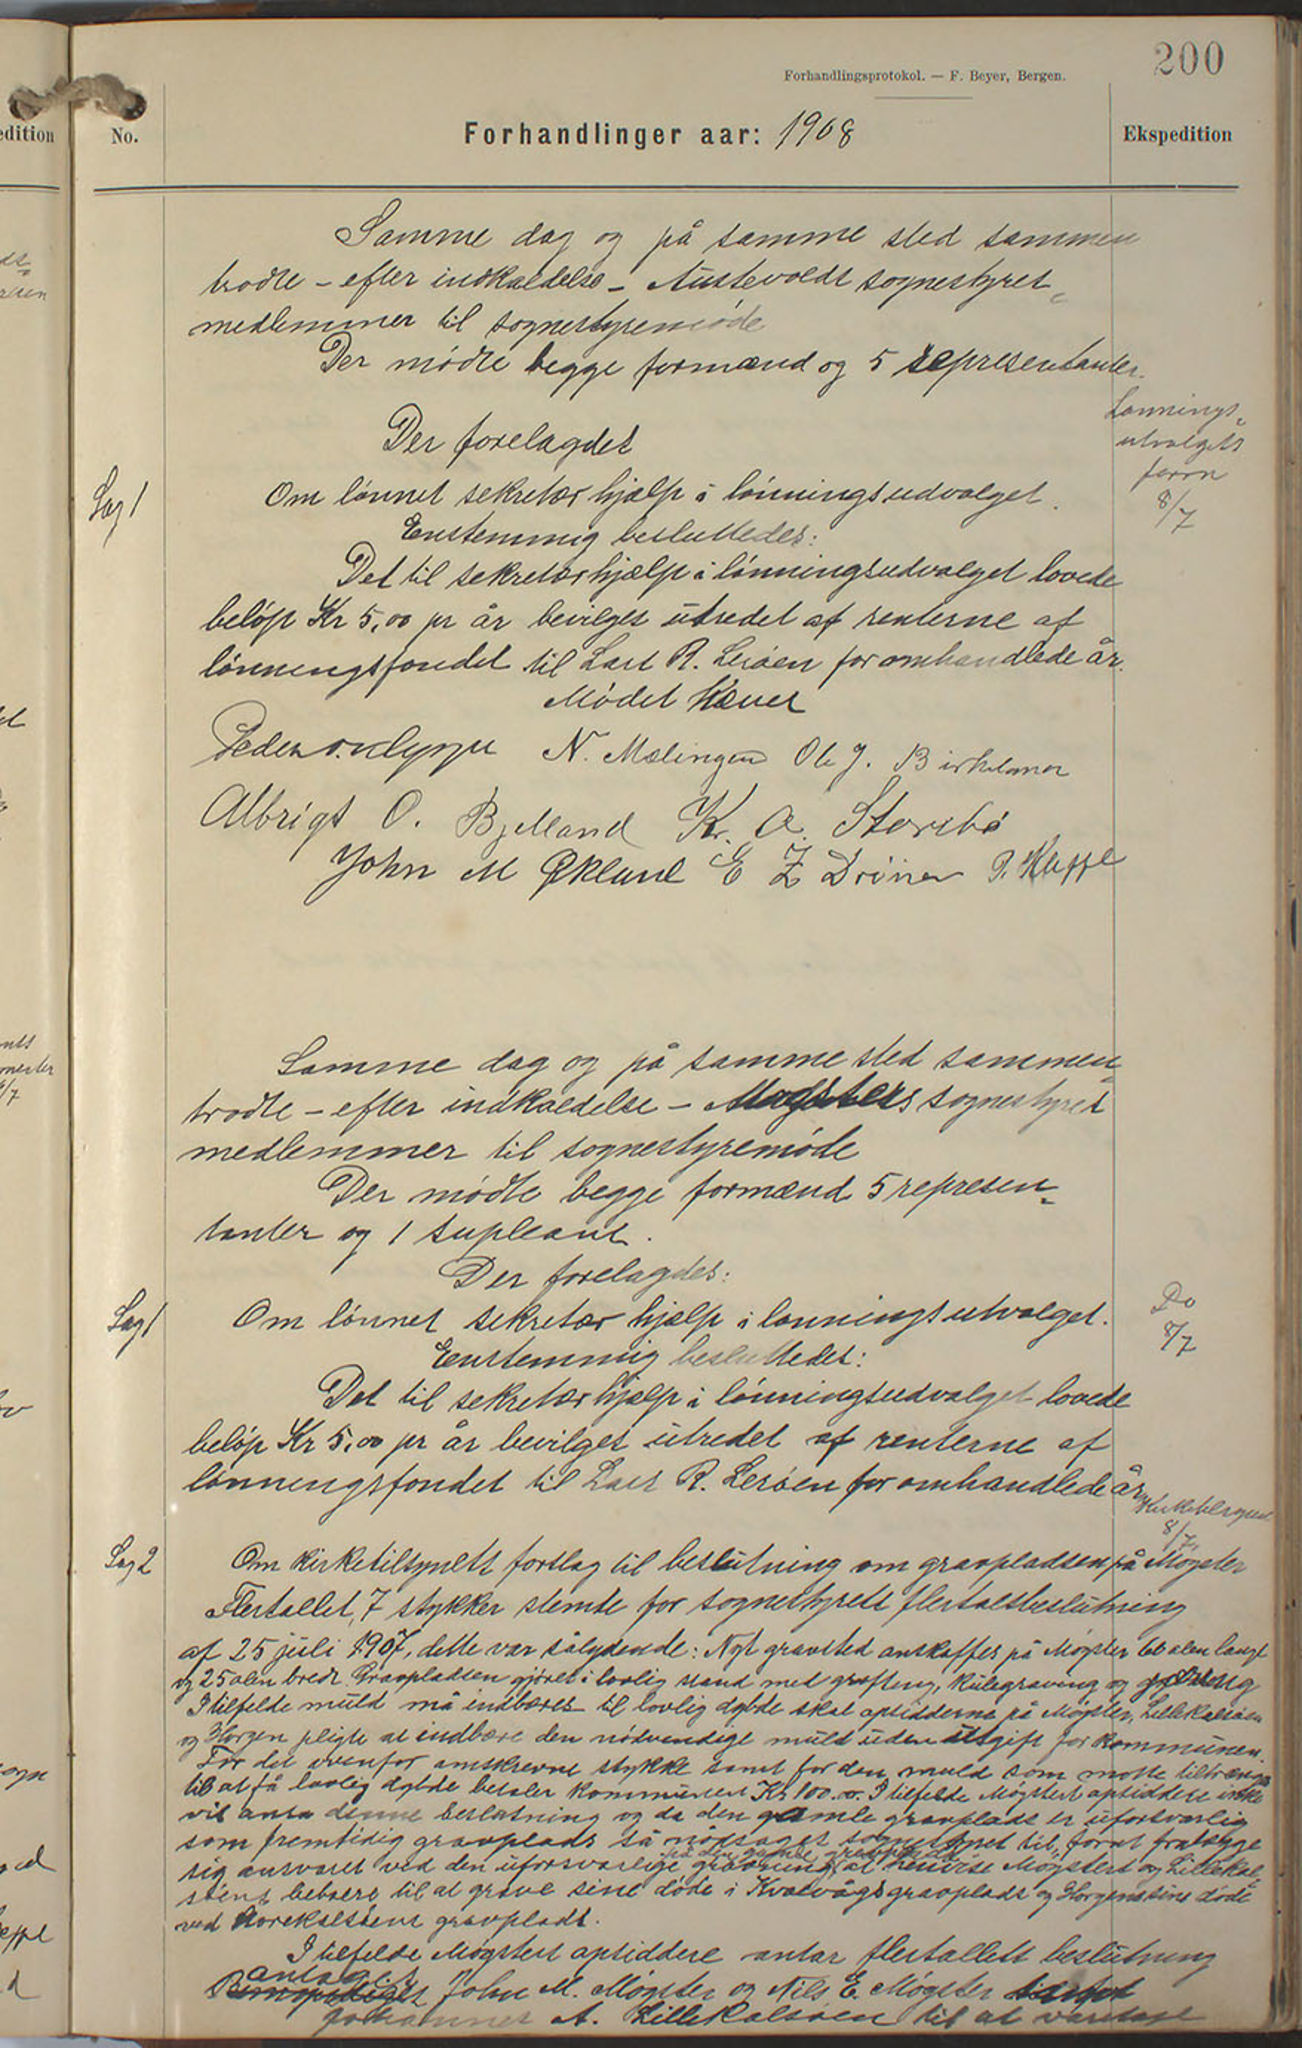 200
Forhandlingsprotokol. — F. Beyer, Bergen.
No.
Forhandlinger aar: 1908
Ekspedition
Samme dag og på samme sted sammen
trådte - efter indkaldelse - Austevolds sognestyres
medlemmer til sognestyremøde
Der mødte begge formænd og 5 representanter.
Der forelagdes
Lønnings-
utvalgets
form
8/7
Sag 1
Om lønnet sekretær hjælp i lønningsudvalget.
Enstemmig besluttedes:
Det til sekretærhjælp i lønningsudvalget lovede
beløp Kr 5,00 pr år bevilges utredet af renterne af
lønningsfondet til Lars R. Lerøen for omhandlede år.
Mødet hævet
N. Mælingen Ole J. Birkeland
Albrigt O. Bjelland Kr. A. Storebø
John M Økland E Z Drønen P. Kappe
Samme dag og på samme sted sammen
trådte - efter indkaldelse - Møgsters sognestyres
medlemmer til sognestyremøde
Der mødte begge formænd 5 represen-
tanter og 1 supleant.
Der forelagdes:
Sag 1
Om lønnet sekretær hjælp i lønningsutvalget.
Do
8/7
Enstemmig besluttedes:
Det til sekretærhjælp i lønningsudvalget lovede
beløp Kr 5,00 pr år bevilges utredet af renterne af
lønningsfondet til Lars R. Lerøen for omhandlede år
8/7
Sag 2
Om kirketilsynets forslag til beslutning om gravpladsen på Møgster
Flertallet, 7 stykker stemte for sognestyrets flertalsbeslutning
af 25 juli 1907, dette var sålydende: Nyt gravsted anskaffes på Møgster 60 alen langt
og 25 alen bredt. Gravpladsen gjøres i lovlig stand med grøfting, kulegraving og
I tilfelde muld må indbæres til lovlig dybde skal opsidderne på Møgster, Lillekalsøen
og Horgen pligte at indbære den nødvendige muld uden utgift for kommunen.
For det ovenfor omskrevne stykke samt for den muld som måtte tiltrænges
til at få lovlig dybde betaler kommunen Kr 100.00. I tilfelde Møgsters opsiddere ikke
vil anta denne beslutning og da den gamle gravplads er uforsvarlig
som fremtidig gravplads så nødsages sognestyret til, forat fralægge
sig ansvaret ved den uforsvarlige gravning på den gamle gravplads at henvise Møgsters og Lillekal-
søens beboere til at grave sine døde i Kvalvågs gravplads og Horgens sine døde
ved Norekalsøens gravplads.
I tilfelde Møgsters opsiddere antar flertallets beslutning
antages John M. Møgster og Nils E. Møgster
Johannes A. Lillekalsøen til at varetage